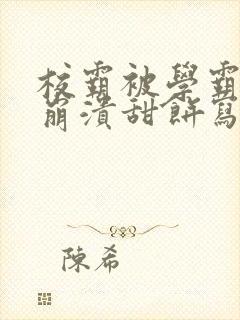 校霸被學霸
崩潰甜餅寫
陳希